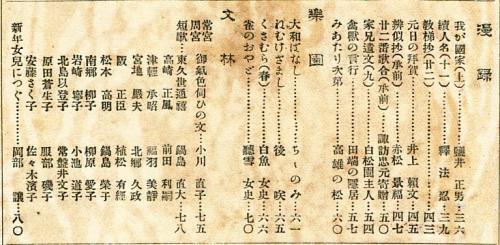 漫録
我が國家(上)……磯井 正男…三六
績人名(十一)……釋 法忍…三九
教梯抄(廿二)……四三
元日の拜賀……井上 頼文…四五
辨似抄(承前)……赤松 景福…四七
廿二番歌合(承前)……諏訪忠元寄贈…五〇
家兄遺文(九)……白松園主人…五四
禽獸の言行……田端の隱居…五七
みあたり次第……高雄の松…六〇
樂園
大和ばなし……ちゝのみ…六一
れむげざまし……後 咲…六五
くさむら(春)……白魚 女史…六六
雀のおやど……聽雪 女史…七〇
文林
常宮 周宮 御紙色伺ひの文…小川 直子…七五
短歌…東久世通禧 鍋島 直大…七八
高崎 正風 前田 利嗣
津輕 承昭 福羽 美靜
宮地 嚴夫 北郷 久政
阪 正臣 植松 有經
松木 高明 鍋島 榮子
南郷 柳子 柳原 愛子
岩崎 寧子 小池 道子
北島以登子 常盤井文子
原田蒼生子 服部 磯子
安藤さく子 佐々木濱子
新年女兒につぐ……岡部 讓…八〇